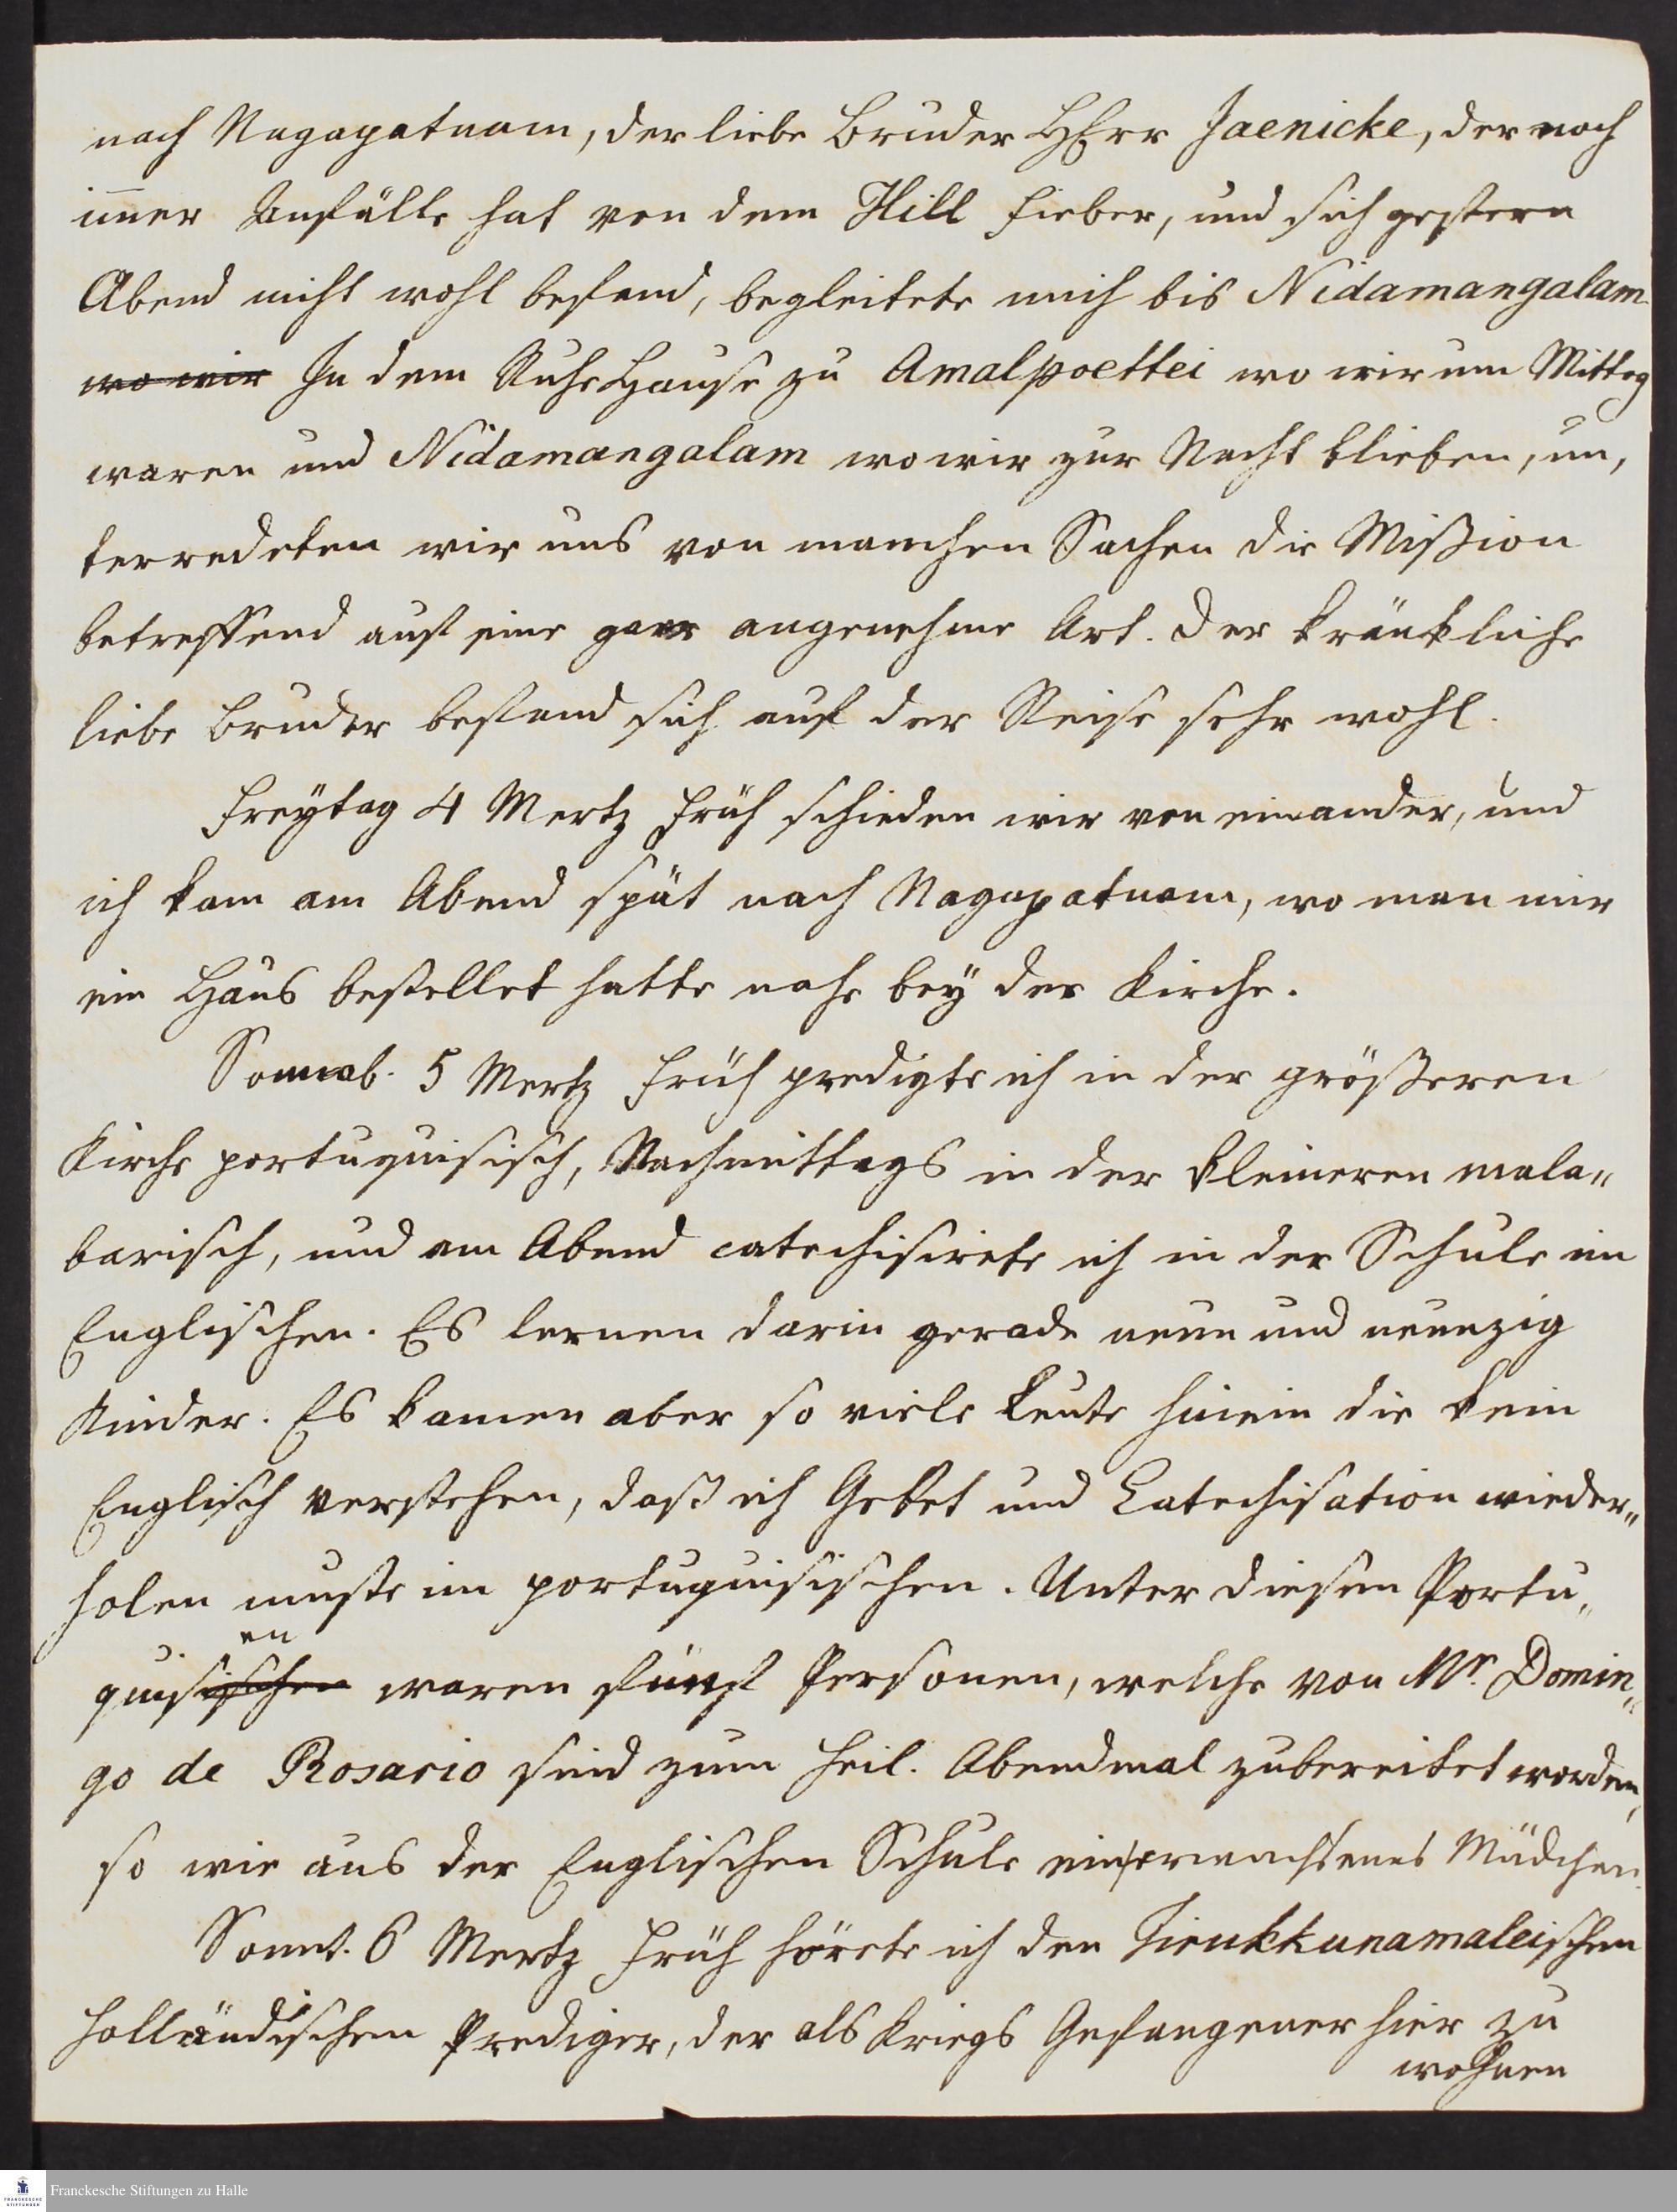 nach Nagapatnam, der liebe Bruder HErr Jaenicke, der noch
im̄er Anfälle hat von dem Hill Fieber, und sich gestern
Abend nicht wohl befand, begleitete mich bis Nidamangalam
wo wir In dem RuheHause zu Amalpoettei wo wir um Mittag
waren und Nidamangalam wo wir zur Nacht blieben, un,
terredeten wir uns von manchen Sachen die Mißion
betreffend auf eine gar angenehme Art. Der kränkliche
liebe Bruder befand sich auf der Reise sehr wohl.
Freÿtag 4 Mertz früh schieden wir von einander, und
ich kam am Abend spät nach Nagapatnam, wo man mir
ein Haus bestellet hatte nahe beÿ der Kirche.
Sonnab. 5 Mertz früh predigte ich in der größeren
Kirche portugisisch, Nachmittags in der kleineren mala„
barisch, und am Abend catechisirete ich in der Schule im
Englischen. Es lernen darin gerade neun und neunzig
Kinder. Es kamen aber so viele Leute hinein die kein
Englisch verstehen, daß ich Gebet und Catechisation wieder„
holen muste im portuguisischen. Unter diesen Portu„
en
guisischen waren fünf Personen, welche von Mr. Domin„
go de Rosario sind zum heil. Abendmal zubereitet worden,
so wie aus der Englischen Schule ein erwachsenes Mädchen.
Sonnt. 6 Mertz früh hörete ich den Tirukkunamaleischen
holländischen Prediger, der als Kriegs Gefangener hier zu
wohnen
Franckesche Stiftungen zu Halle
FRANCKESCHE
STIFTUNGEN